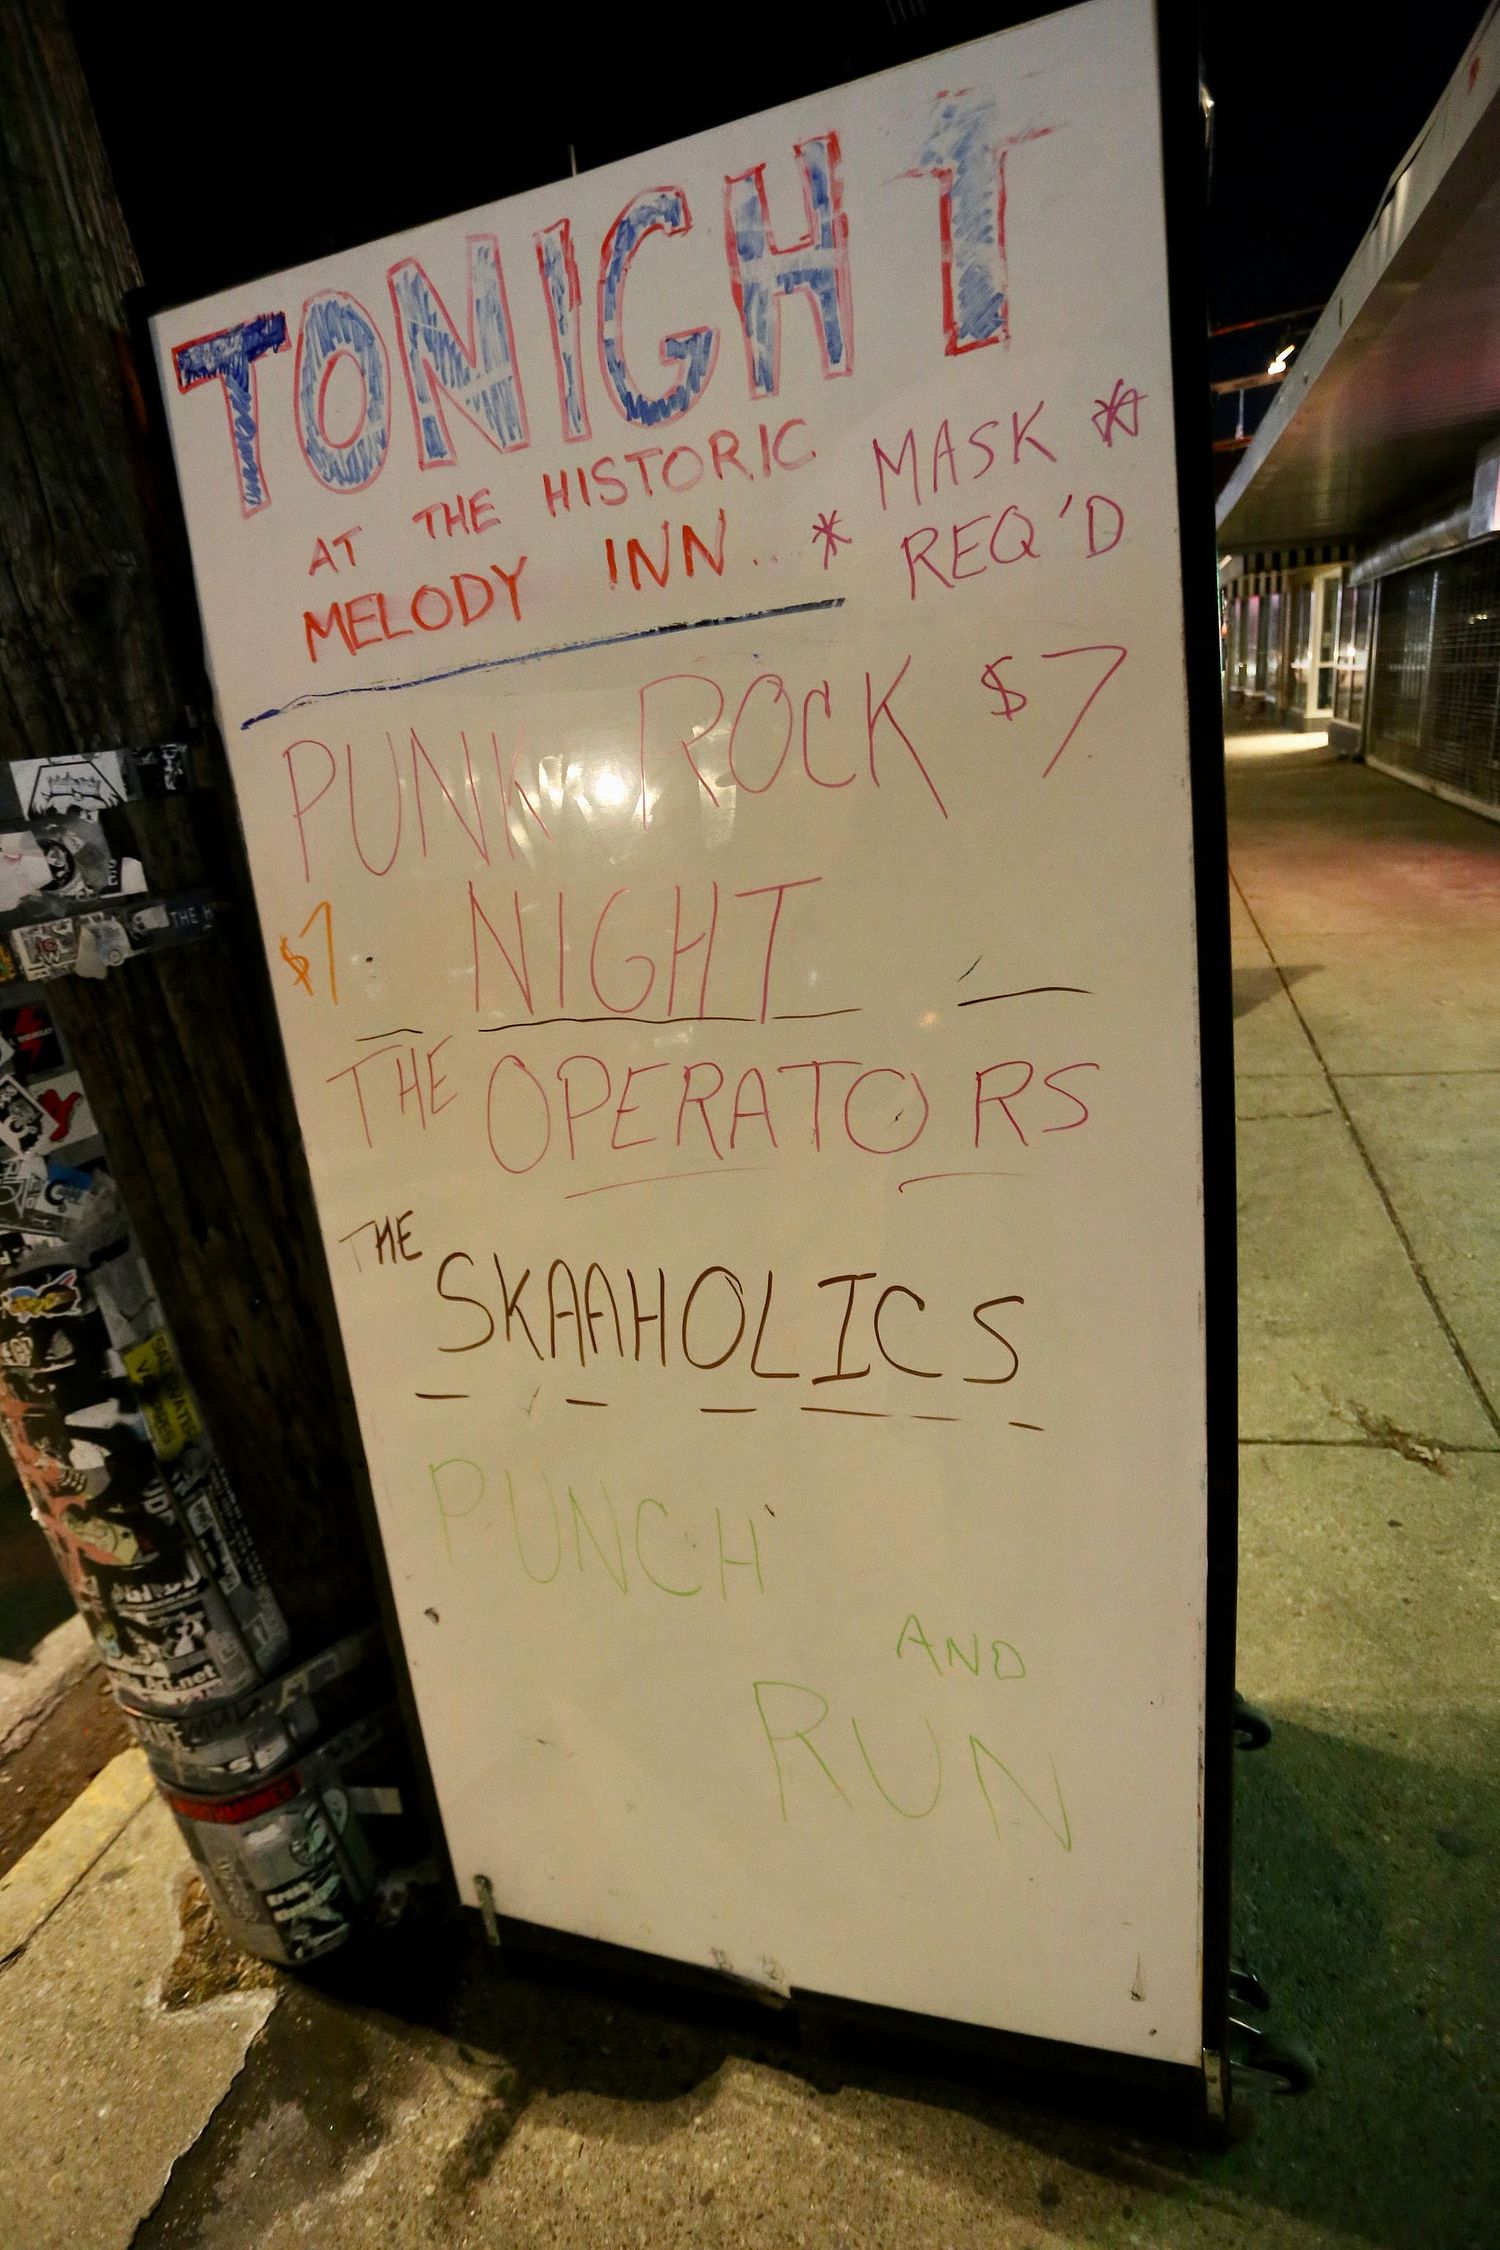 TONIGHT
AT THE HISTORIC
MELODY INN..
* MASK *
REQ'D
PUNK ROCK $7
$7. NIGHT
THE OPERATORS
THE
SKAAHOLICS
PUNCH
AND
RUN
THE H
SALTWATER
VAMPIRES
Art.net